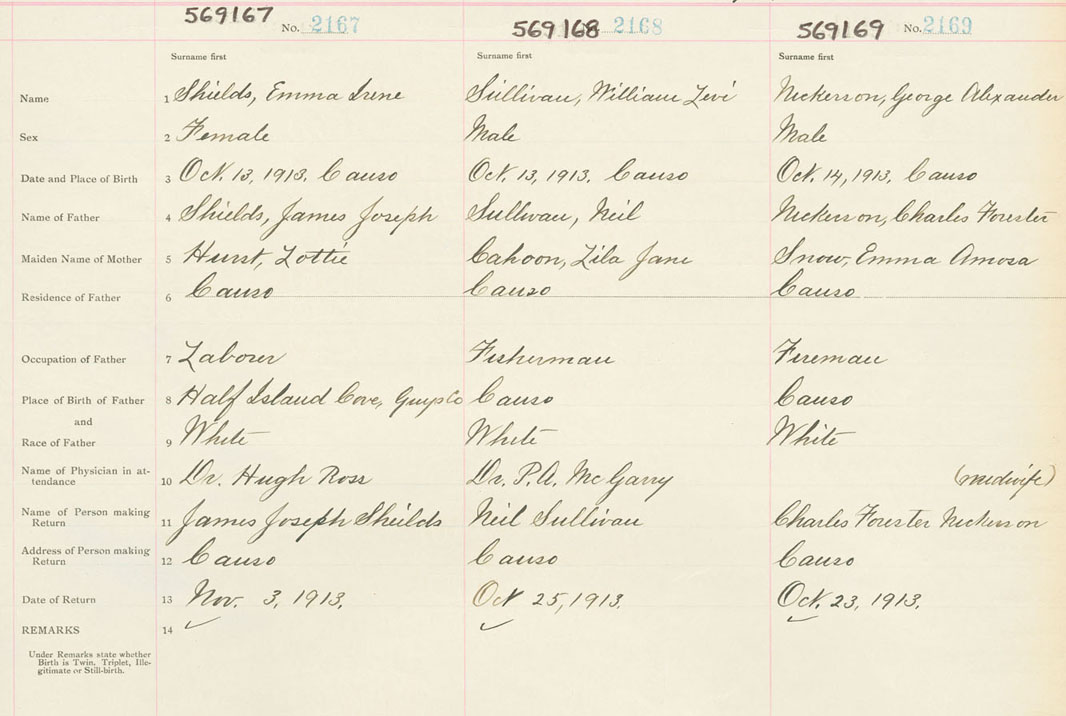 569167 No. 2167 569168 2168 569169 No. 2169
Surname first Surname first Surname first
Name 1 Shields, Emma Irene Sullivan, William Levi Nickerson, George Alexander
Sex 2 Female Male Male
Date and Place of Birth 3 Oct. 13, 1913. Canso Oct. 13, 1913. Canso Oct. 14, 1913. Canso
Name of Father 4 Shields, James Joseph Sullivan, Neil Nickerson, Charles Forester
Maiden Name of Mother 5 Hurst, Lottie Cahoon, Lila Jane Snow, Emma Amosa
Residence of Father 6 Canso Canso Canso
Occupation of Father 7 Laborer Fisherman Fireman
Place of Birth of Father 8 Half Island Cove, Guys Co Canso Canso
and
Race of Father 9 White White White
Name of Physician in at-
tendance 10 Dr. Hugh Ross Dr. P.A. McGarry (midwife)
Name of Person making
Return 11 James Joseph Sheilds Neil Sullivan Charles Forester Nickerson
Address of Person making
Return 12 Canso Canso Canso
Date of Return 13 Nov. 3, 1913. Oct 25, 1913. Oct. 23, 1913.
REMARKS 14
Under Remarks state whether
Birth is Twin, Triplet, Ille-
gitimate or Still-birth.